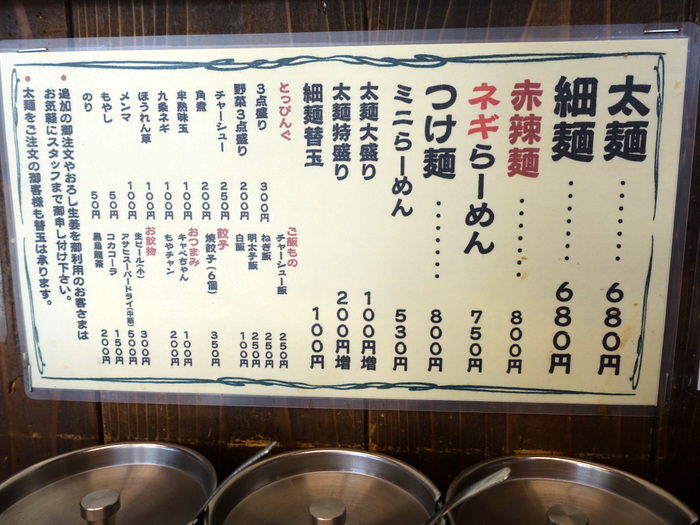 太麺・・・・・・・680円
細麺・・・・・・・680円
赤辣麺・・・・・・800円
ネギらーめん 750円
つけ麺・・・・・・・800円
ミニらーめん 530円
太麺大盛り 100円増
太麺特盛り 200円増
細麺替玉 100円
とっぴんぐ
3点盛り 300円
野菜3点盛り 200円
チャーシュー 250円
角煮 200円
半熟味玉 100円
九条ネギ 100円
ほうれん草 100円
メンマ 100円
もやし 50円
のり 50円
ご飯もの
チャーシュー飯 250円
ねぎ飯 250円
明太子飯 250円
白飯 100円
餃子
焼餃子(6個) 350円
おつまみ
キャベちゃん 100円
もやチャン 200円
お飲物
生ビール(小) 300円
アサヒスーパードライ(中瓶) 500円
コカコーラ 150円
黒烏龍茶 200円
●追加の御注文やおろし生姜を御利用のお客さまは
お気軽にスタッフまで御申し付け下さい。
●太麺をご注文の御客様も替玉は承ります。